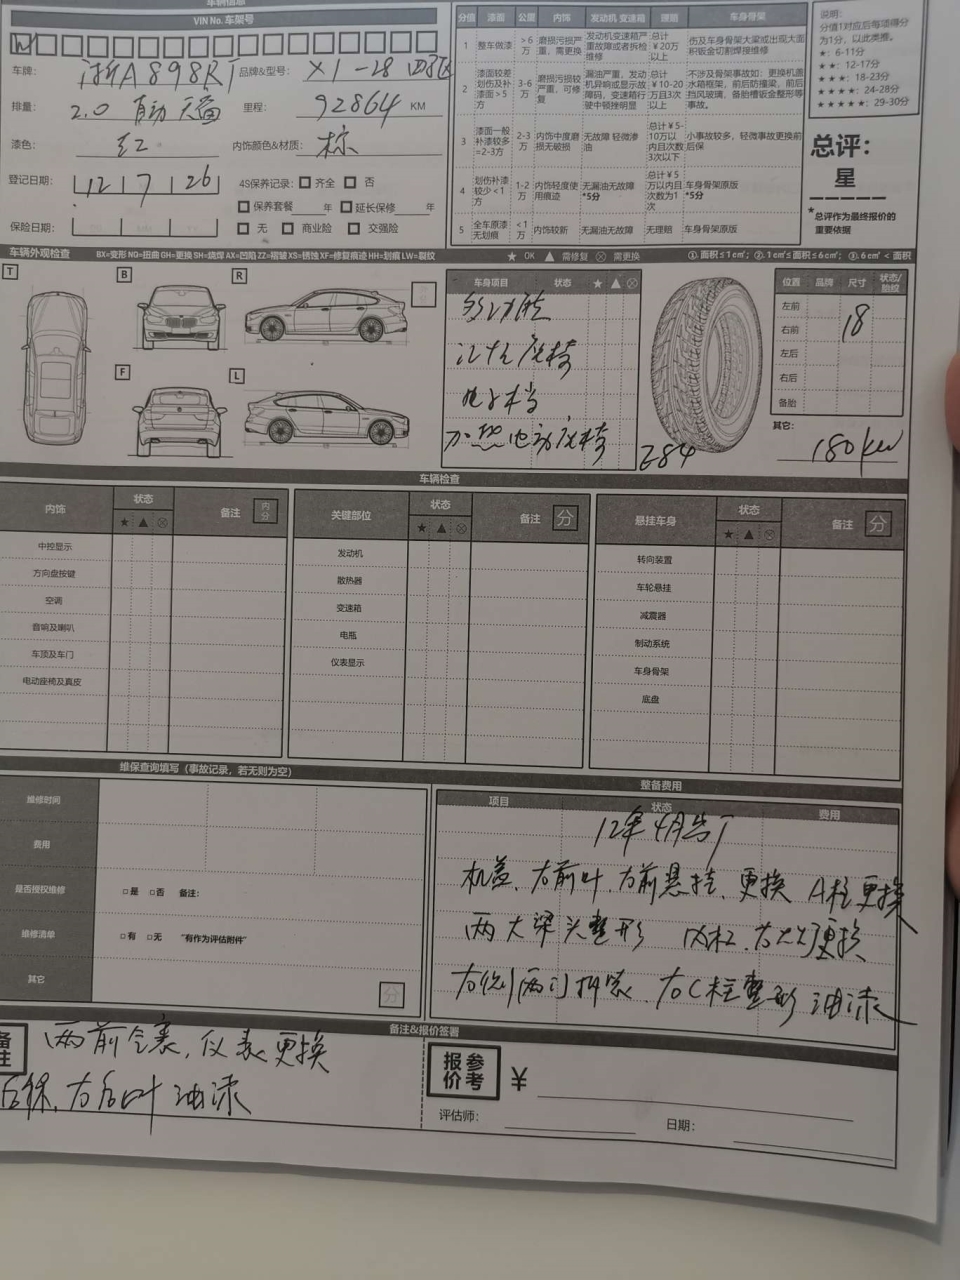 车辆信息
VIN No. 车架号
车牌: 浙A898R 品牌&型号: X1-28 四驱
排量: 2.0 自动 天窗 里程: 92864 KM
漆色: 红 内饰颜色&材质: 棕
登记日期: 12 7 26 4S保养记录: 齐全 否
保养套餐 年 延长保修 年
保险日期: 无 商业险 交强险
分值 漆面 公里 内饰 发动机 变速箱 理赔 车身骨架
1 整车做漆 >6万 磨损污损严重，需更换 发动机变速箱严重故障或者拆检维修 总计¥20万以上 伤及车身骨架大梁或出现大面积钣金切割焊接维修
2 漆面较差划伤及补漆面>5方 3-6万 磨损污损较严重，可修复 漏油严重，发动机异响或显示故障码，变速箱行驶中顿挫明显 总计¥10-20万且3次以上 不涉及骨架事故如：更换机盖水箱框架，前后防撞梁，前后挡风玻璃、备胎槽钣金整形等事故。
3 漆面一般补漆较多=2-3方 2-3万 内饰中度磨损无破损 无故障 轻微渗油 总计¥5-10万以内且次数3次以下 小事故较多，轻微事故更换前后保
4 划伤补漆较少<1方 1-2万 内饰轻度使用痕迹 无漏油无故障 *5分 总计¥5万以内且次数为1次 车身骨架原版 *5分
5 全车原漆无划痕 <1万 内饰较新 无漏油无故障 无理赔 车身骨架原版
说明:
分值1对应后每项得分为1分，以此类推。
★: 6-11分
★★: 12-17分
★★★: 18-23分
★★★★: 24-28分
★★★★★: 29-30分
总评:
星
*总评作为最终报价的重要依据
车辆外观检查 BX=变形 NQ=扭曲 GH=更换 SH=烧焊 AX=凹陷 ZZ=褶皱 XS=锈蚀 XF=修复痕迹 HH=划痕 LW=裂纹 ★ OK ▲ 需修复 ⊗ 需更换 ①. 面积≤1c㎡; ②. 1c㎡≤面积≤6c㎡; ③. 6c㎡<面积
T B R
F L
车身项目 状态 ★ ▲ ⊗
多功能
记忆座椅
电子档
加热电动座椅
E84
位置 品牌 尺寸 状态/胎纹
左前
右前 18
左后
右后
备胎
其它: 180kw
车辆检查
内饰 状态 ★ ▲ ⊗ 备注 内分
中控显示
方向盘按键
空调
音响及喇叭
车顶及车门
电动座椅及真皮
关键部位 状态 ★ ▲ ⊗ 备注 分
发动机
散热器
变速箱
电瓶
仪表显示
悬挂车身 状态 ★ ▲ ⊗ 备注 分
转向装置
车轮悬挂
减震器
制动系统
车身骨架
底盘
维保查询填写（事故记录，若无则为空）
维修时间
费用
是否授权维修 □是 □否 备注:
维修清单 □有 □无 "有作为评估附件"
其它 分
整备费用
项目 状态 费用
12年4月出厂
机盖、右前叶、右前悬挂、更换 A柱更换
两大梁头整形 内杠、右大灯更换
右侧两门 右C柱整形 油漆
备注&报价签署
备注 两前气囊，仪表更换
后保、右后叶 油漆
参考报价 ¥
评估师: 日期: